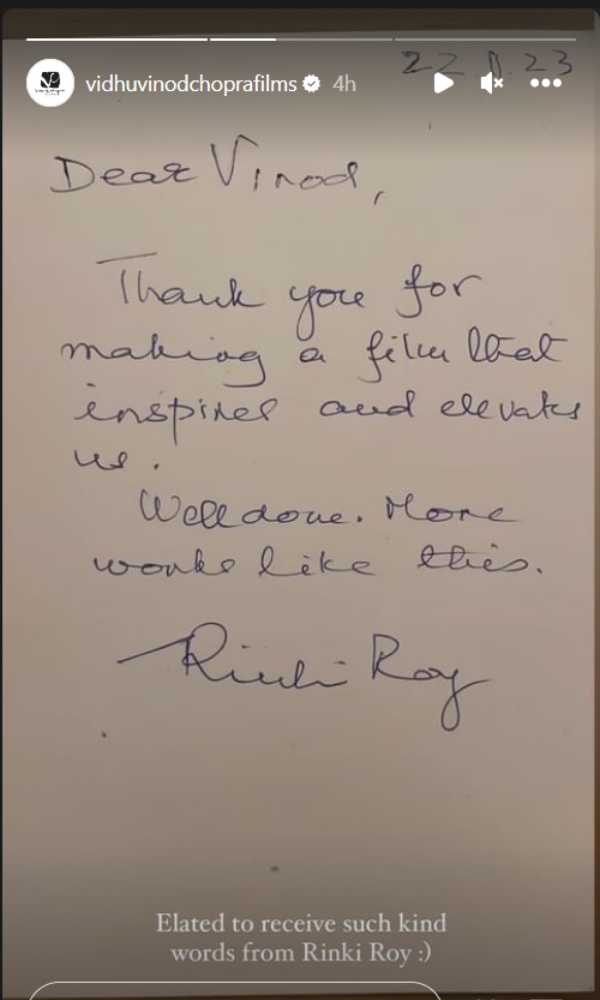 22.11.23
vidhuvinodchoprafilms 4h
Dear Vinod,
Thank you for
making a film that
inspires and elevates
us.
Well done. More
works like this.
Rinki Roy
Elated to receive such kind
words from Rinki Roy :)